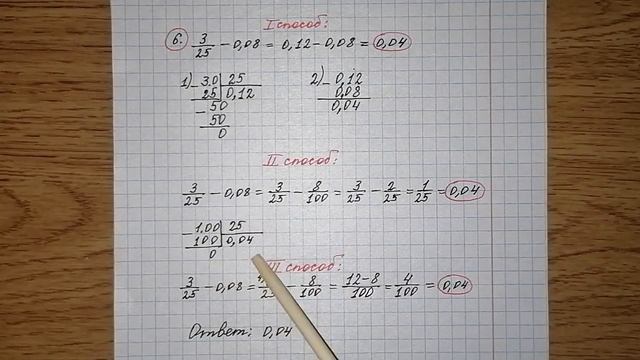 I способ:
6. 3/25 - 0,08 = 0,12 - 0,08 = 0,04
1) - 3.0 | 25
25 | 0,12
- 50
50
0
2) - 0,12
0,08
0,04
II способ:
3/25 - 0,08 = 3/25 - 8/100 = 3/25 - 2/25 = 1/25 = 0,04
- 1.00 | 25
100 | 0,04
0
способ:
3/25 - 0,08 = - 8/100 = 12-8/100 = 4/100 = 0,04
Ответ: 0,04